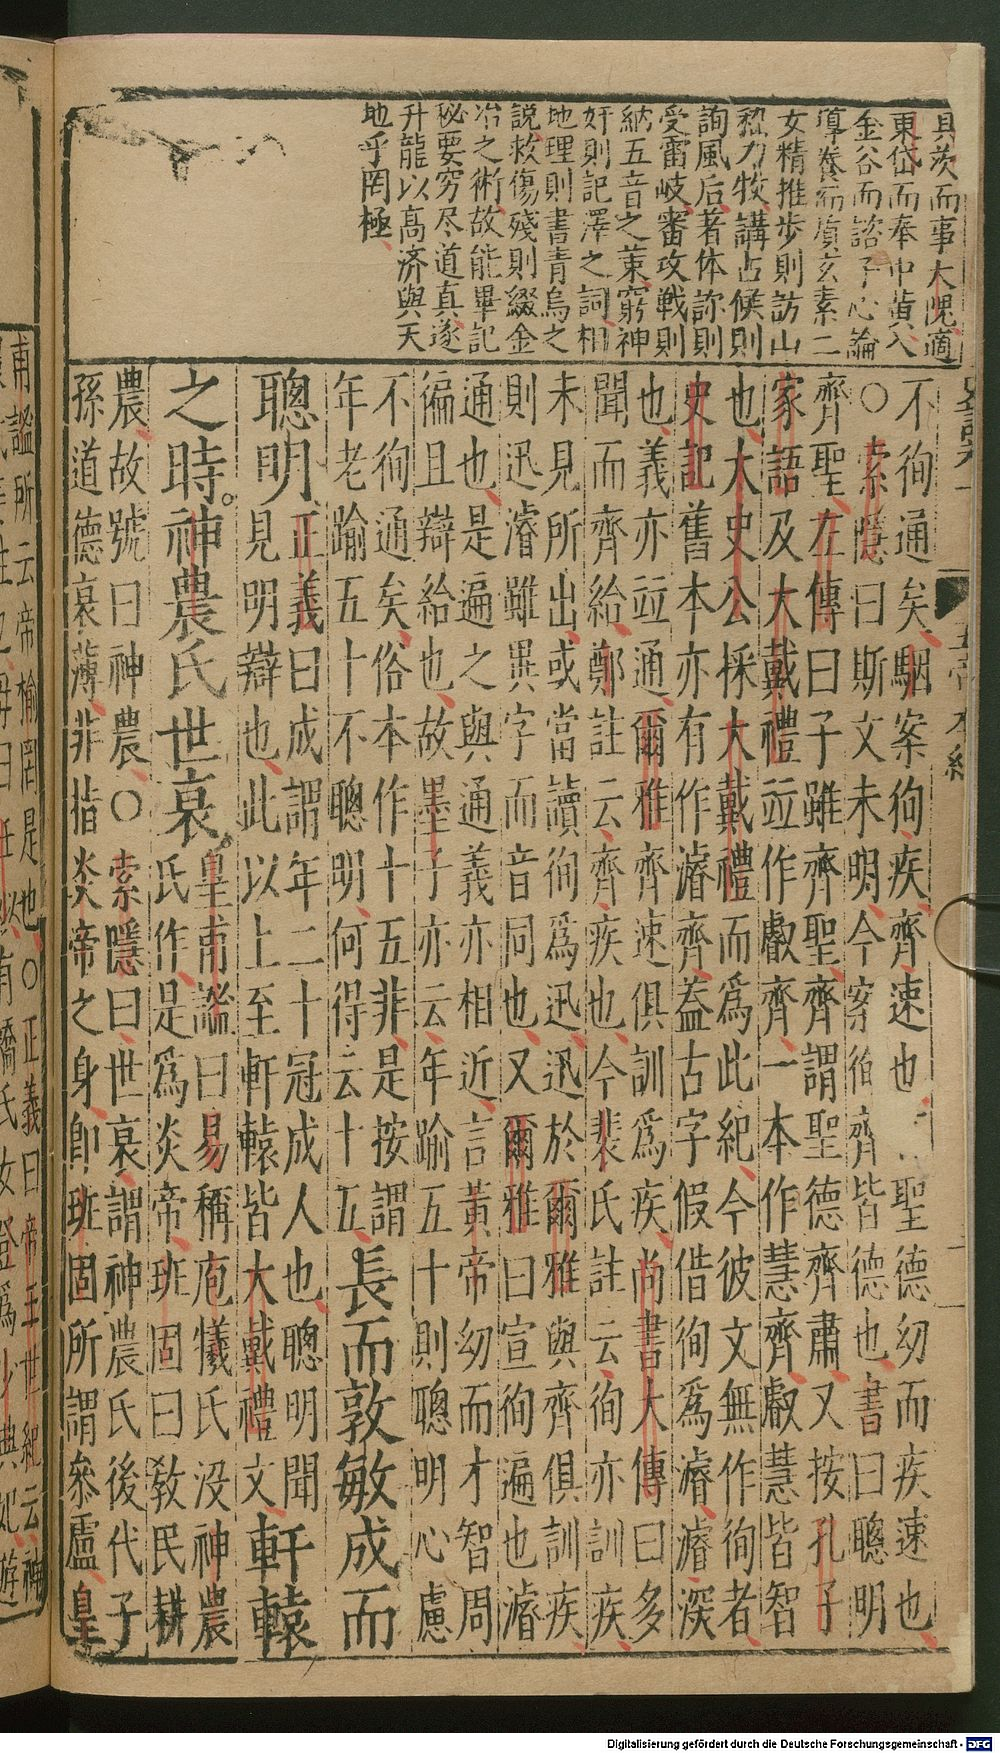 具茨而事大隗適
東岱而奉中黃入
金谷而諮子心論
導養而質玄素二
女精推步則訪山
稽力牧講占候則
詢風后著体診則
受雷岐審攻戰則
納五音之策窮神
奸則記澤之詞相
地理則書青烏之
說救傷殘則綴金
冶之術故能畢記
秘要窮尽道真遂
升龍以高济與天
地乎罔極
五帝本紀
不徇通矣駰案徇疾齊速也聖德幼而疾速也
○索隱曰斯文未明今案徇齊皆德也書曰聰明
齊聖左傳曰子雖齊聖齊謂聖德齊肅又按孔子
家語及大戴禮竝作叡齊一本作慧齊叡慧皆智
也大史公採大戴禮而爲此紀今彼文無作徇者
史記舊本亦有作濬齊蓋古字假借徇爲濬濬深
也義亦竝通爾雅齊速俱訓爲疾尚書大傳曰多
聞而齊給鄭註云齊疾也今裴氏註云徇亦訓疾
未見所出或當讀徇爲迅迅於爾雅與齊俱訓疾
則迅濬雖異字而音同也又爾雅曰宣徇遍也濬
通也是遍之與通義亦相近言黃帝幼而才智周
徧且辯給也故墨子亦云年踰五十則聰明心慮
不徇通矣俗本作十五非是按謂
年老踰五十不聰明何得云十五
長而敦敏成而
聰明
正義曰成謂年二十冠成人也聰明聞
見明辯也此以上至軒轅皆大戴禮文
軒轅
之時。神農氏世衰。
皇甫謐曰易稱庖犧氏没神農
氏作是爲炎帝班固曰敎民耕
農故號曰神農○索隱曰世衰謂神農氏後代子
孫道德衰薄非指炎帝之身卽班固所謂參盧皇
甫謐所云帝榆罔是也○正義曰帝王世紀云神
姓也母曰任姒有蟜氏女登爲少典妃遊
Digitalisierung gefördert durch die Deutsche Forschungsgemeinschaft - DFG